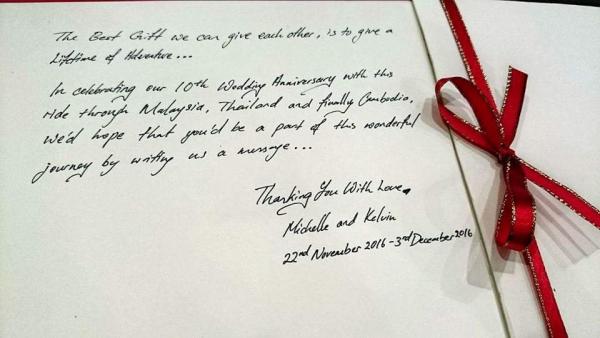 The Best Gift we can give each other, is to give a
Lifetime of Adventure...
In celebrating our 10th Wedding Anniversary with this
ride through Malaysia, Thailand and finally Cambodia,
we'd hope that you'd be a part of this wonderful
journey by writing us a message...
Thanking You With Love,
Michelle and Kelvin
22nd November 2016 - 3rd December 2016